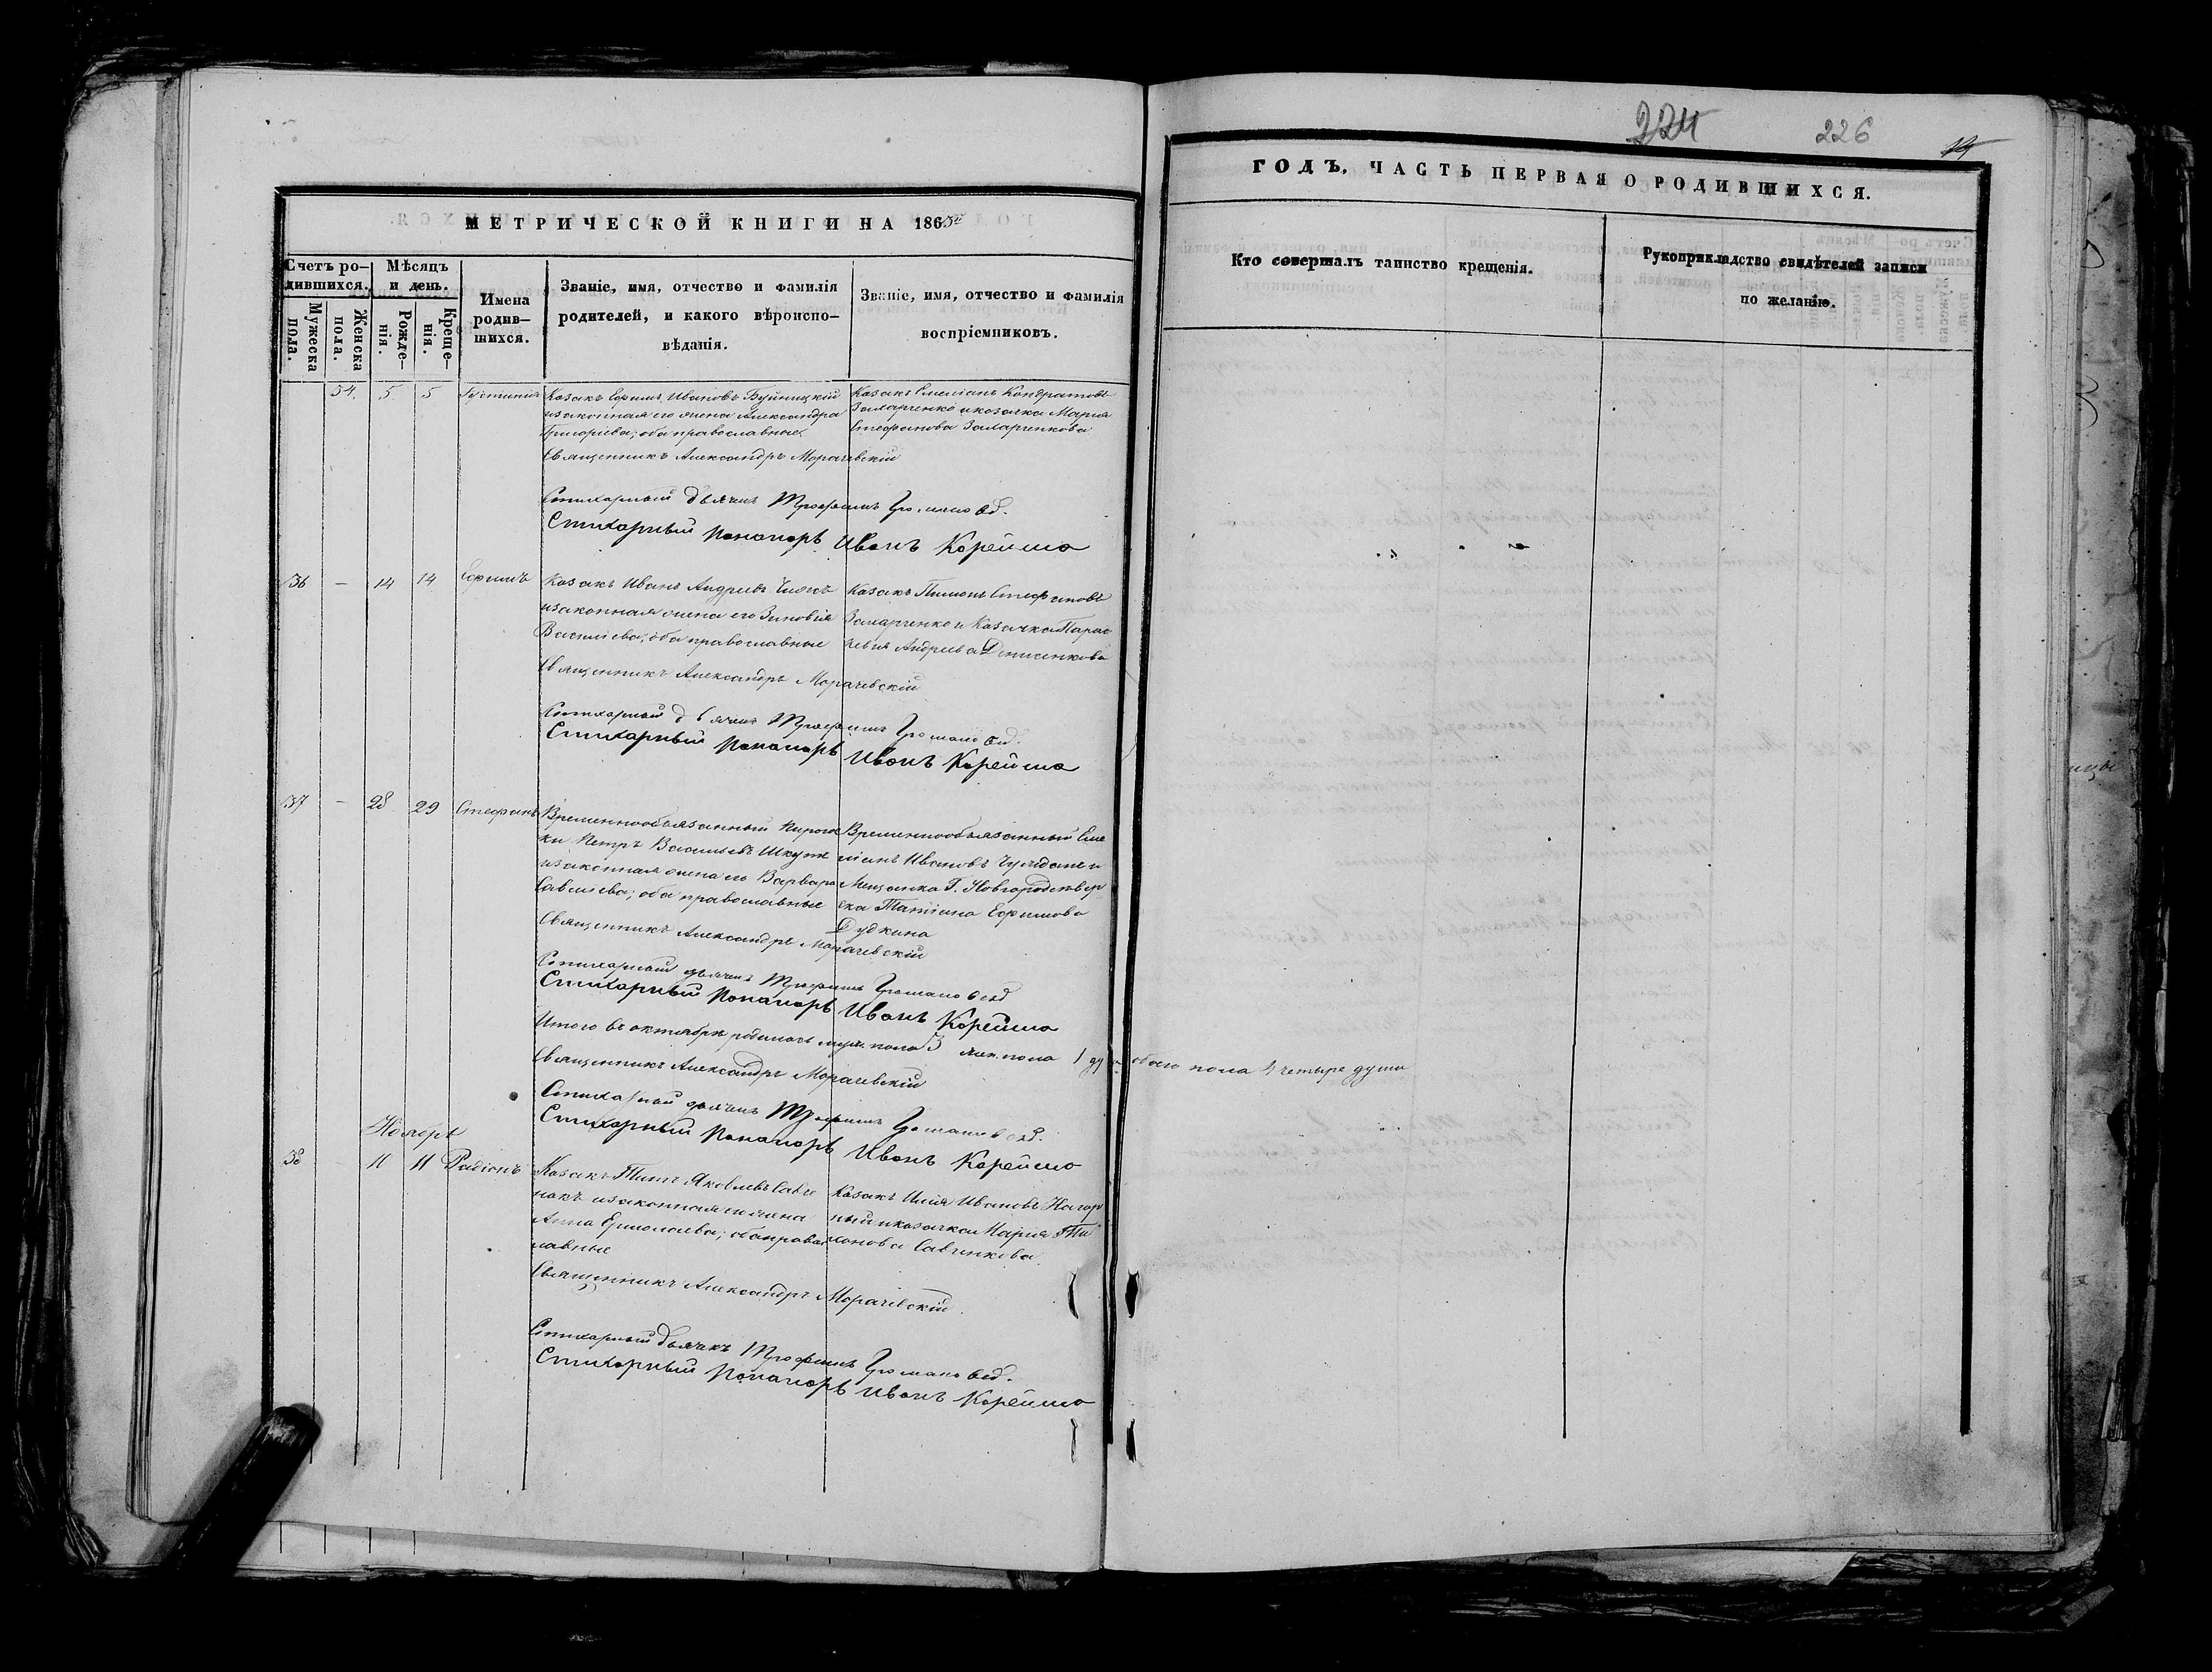 224 226
МЕТРИЧЕСКОЙ КНИГИ НА 1865й
ГОДЪ, ЧАСТЬ ПЕРВАЯ О РОДИВШИХСЯ.
Счетъ ро-
дившихся.
Мужеска пола.
Женска пола.
Мѣсяцъ
и день.
Рожде-
нія.
Креще-
нія.
Имена
родив-
шихся.
Званіе, имя, отчество и фамилія
родителей, и какого вѣроиспо-
вѣданія.
Званіе, имя, отчество и фамилія
воспріемниковъ.
Кто совершалъ таинство крещенія.
Рукоприкладство свидѣтелей записи
по желанію.
54. 5 5
Казакъ Ефимъ Ивановъ Буйницкій
и законная его жена Александра
Григоріева; оба православные.
Казакъ Емеліанъ Кондратовъ
Захарченко и козачка Марія
Стефанова Захарченкова
Священникъ Александръ Морачевскій
Стихарный дьячекъ Трофимъ
Стихарный пономарь Иванъ Корейша
36 — 14 14 Ефимъ
Казакъ Иванъ Андреевъ
и законная жена его Зиновія
Василіева; оба православные
Казакъ Пимонъ Стефановъ
Захарченко и Казачка Парас
кевія Андреева Денисенкова
Священникъ Александръ Морачевскій
Стихарный дьячекъ Трофимъ
Стихарный пономарь Иванъ Корейша
37 — 28 29 Стефанъ
Временнообязанный
Петръ Васильевъ
и законная жена его Варвара
Савеліева; оба православные
Временнообязанный Еме
ліанъ Ивановъ и
Мещанка Г. Новгородсѣвер
ска Татіана Ефимова
Дудкина
Священникъ Александръ Морачевскій
Стихарный дьячекъ Трофимъ
Стихарный пономарь Иванъ Корейша
Итого въ октябрѣ родилось муж. пола 3 жен. пола 1 душа обоего пола 4 четыре души
Священникъ Александръ Морачевскій
Стихарный дьячекъ Трофимъ
Стихарный пономарь Иванъ Корейша
Ноябрь
38 11 11 Радіонъ
Казакъ Титъ Яковлевъ Савче
нокъ и законная его жена
Анна Ермолаева; оба правос
лавные
Казакъ Илія Ивановъ Нагор
ный и козачка Марія Ти
хонова Савченкова.
Священникъ Александръ Морачевскій.
Стихарный дьячекъ Трофимъ
Стихарный пономарь Иванъ Корейша